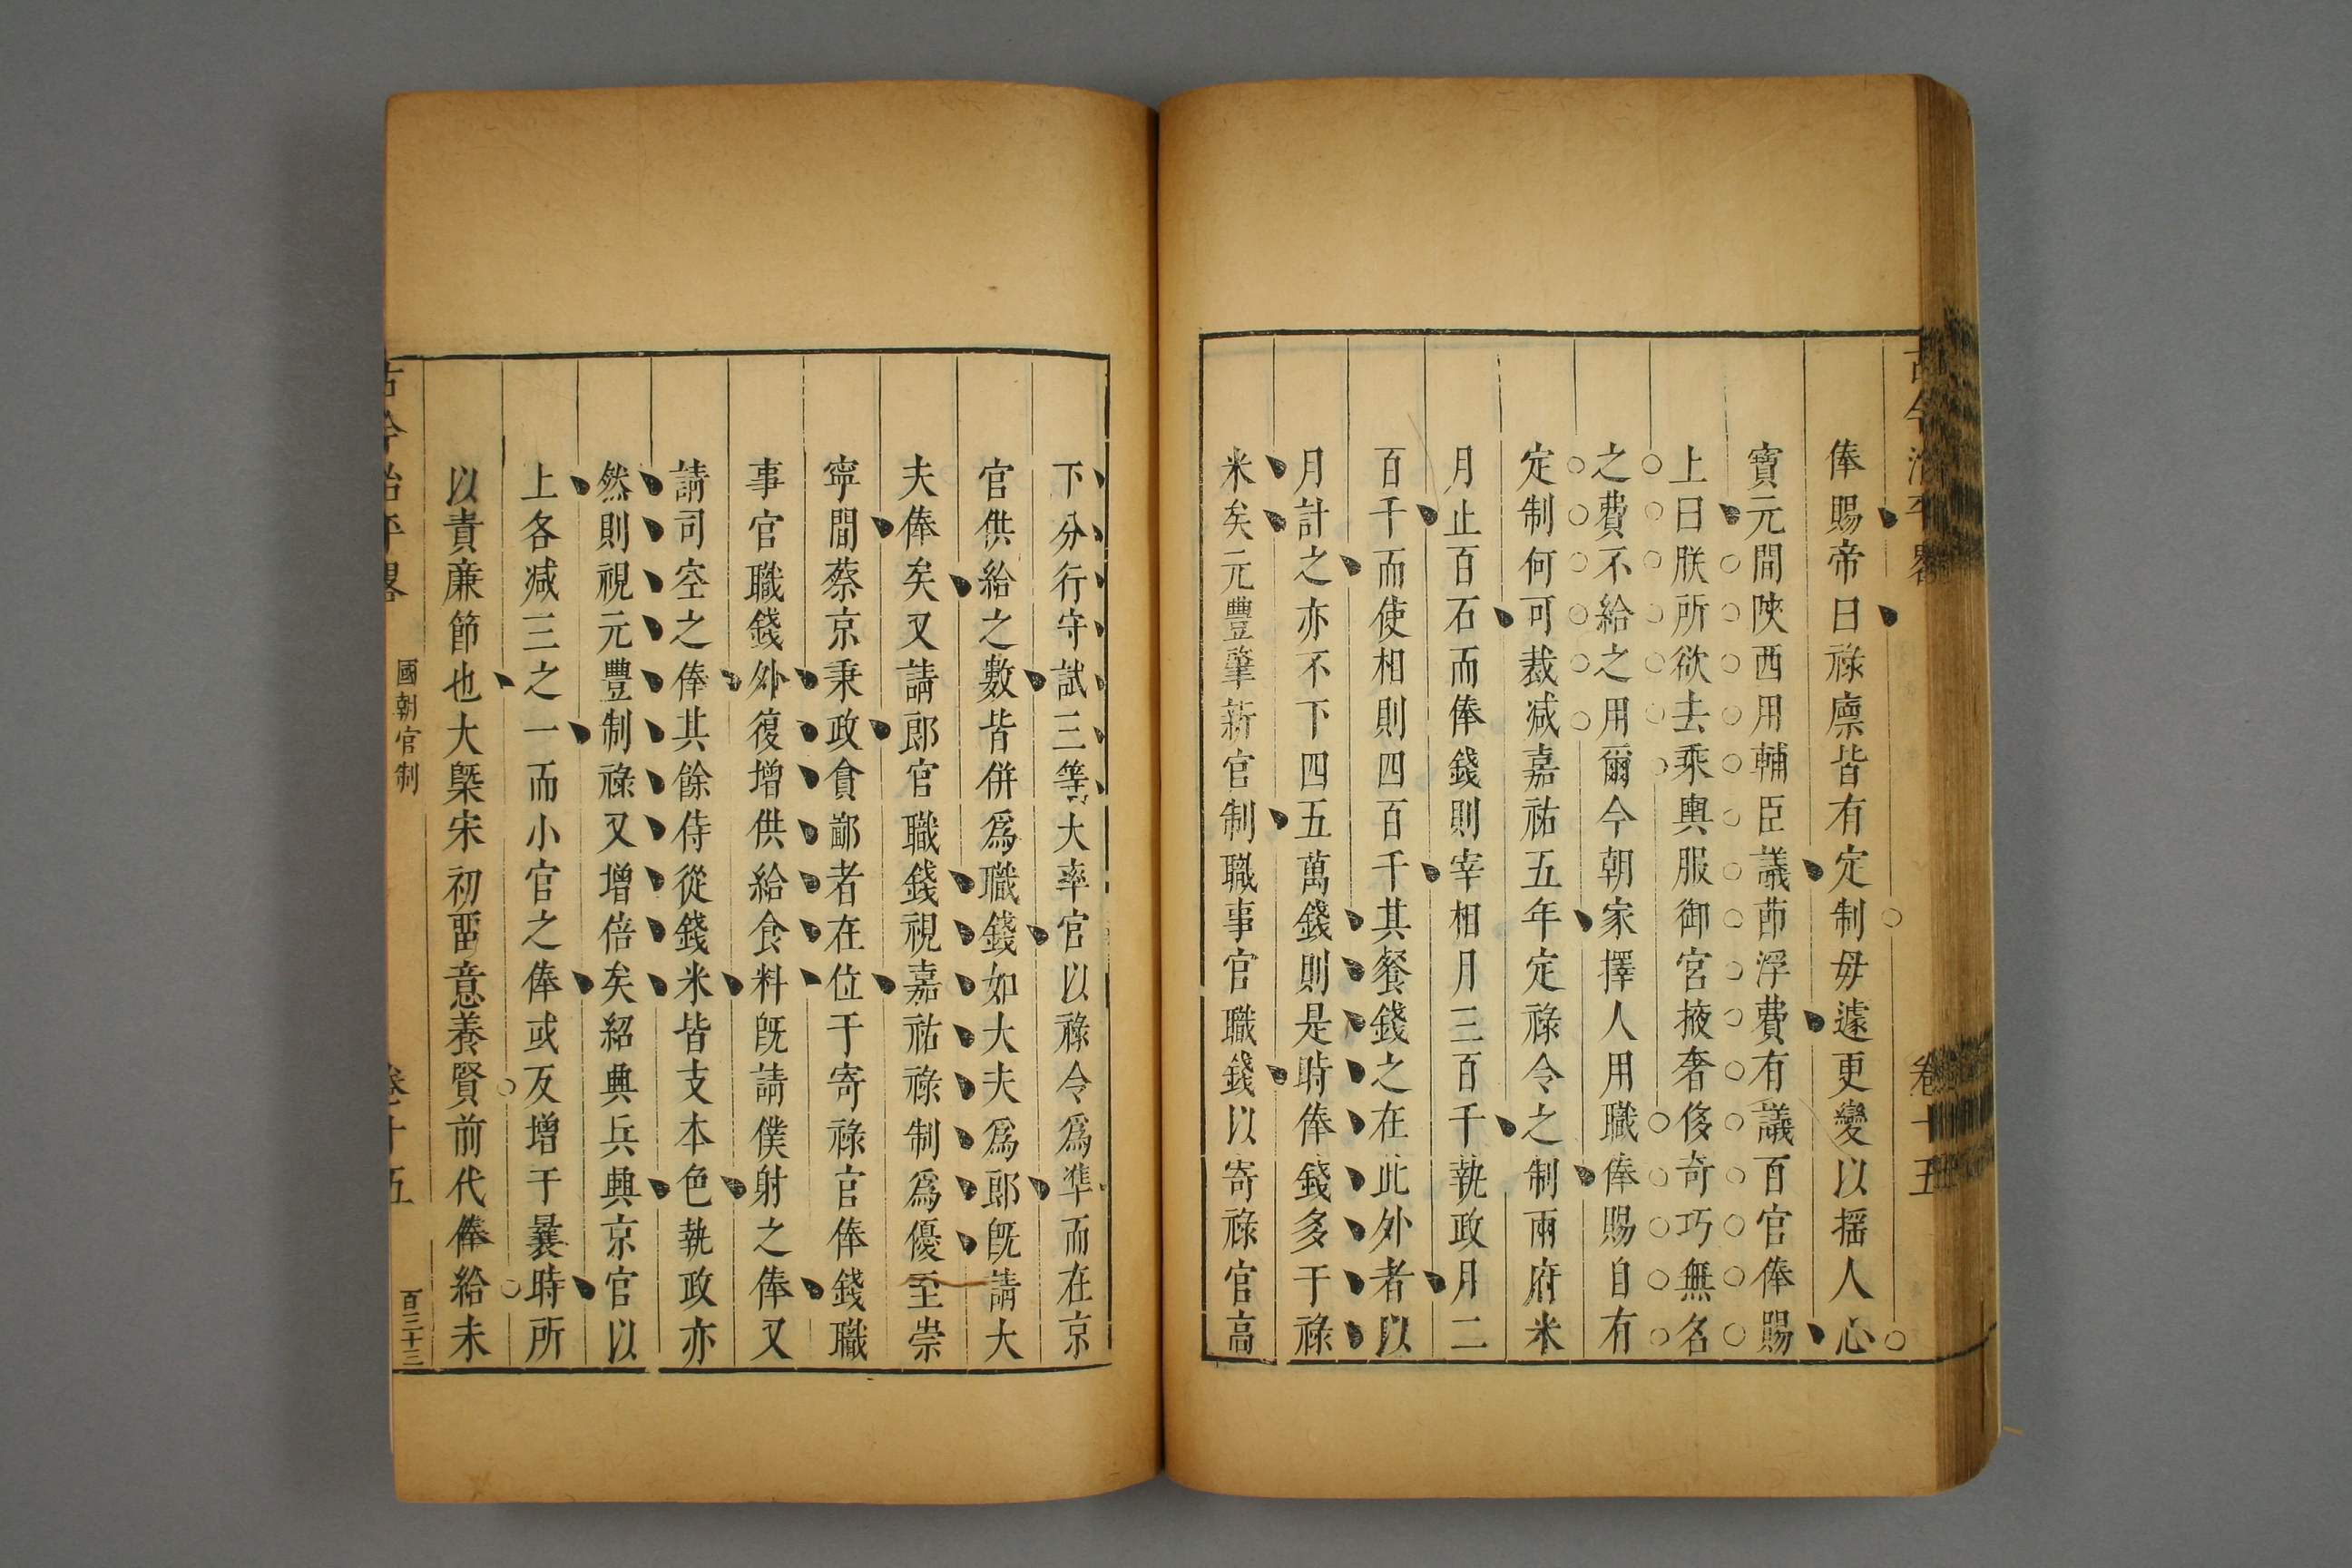 古今治平畧
卷十五
俸賜帝曰祿廪皆有定制毋遽更變以摇人心
寶元間陝西用輔臣議莭浮費有議百官俸賜
上曰朕所欲去乘輿服御宮掖奢侈奇巧無名
之費不給之用爾今朝家擇人用職俸賜自有
定制何可裁减嘉祐五年定祿令之制兩府米
月止百石而俸錢則宰相月三百千執政月二
百千而使相則四百千其餐錢之在此外者以
月計之亦不下四五萬錢則是時俸錢多于祿
米矣元豐肇新官制職事官職錢以寄祿官高
下分行守試三等大率官以祿令爲凖而在京
官供給之數皆併爲職錢如大夫爲郎旣請大
夫俸矣又請郎官職錢視嘉祐祿制爲優至崇
寧間蔡京秉政貪鄙者在位于寄祿官俸錢職
事官職錢外復增供給食料旣請僕射之俸又
請司空之俸其餘侍從錢米皆支本色執政亦
然則視元豐制祿又增倍矣紹典兵興京官以
上各减三之一而小官之俸或反增于曩時所
以責亷節也大槩宋初畱意養賢前代俸給未
古今治平畧
國朝官制
卷十五
百三十三